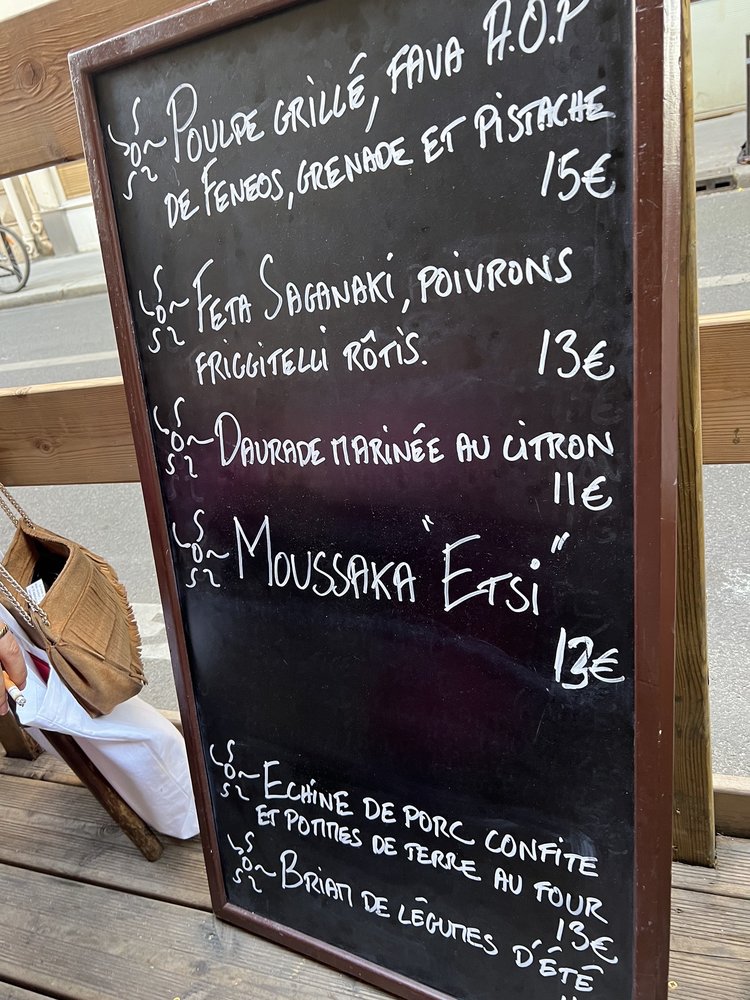 Poulpe grillé, fava A.O.P
de Feneos, grenade et pistache
15€
Feta Saganaki, poivrons
friggitelli rôtis.
13€
Daurade marinée au citron
11€
Moussaka "Etsi"
13€
Echine de porc confite
et pommes de terre au four
13€
Briam de légumes d'été